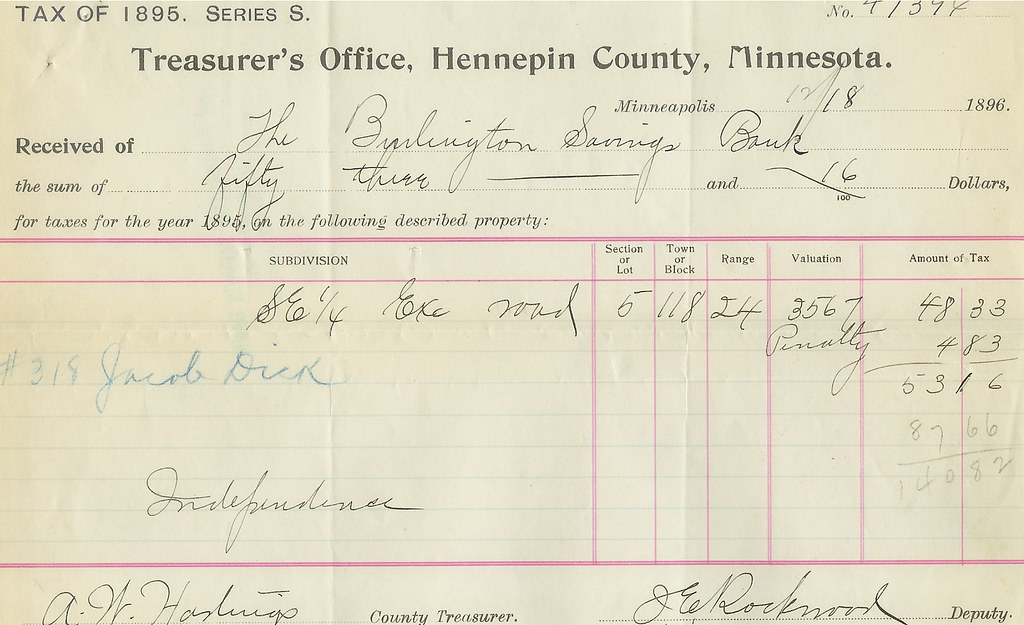 TAX OF 1895. SERIES S. No. 41394
Treasurer's Office, Hennepin County, Minnesota.
Minneapolis 12/18 1896.
Received of The Burlington Savings Bank
the sum of fifty three and 16/100 Dollars,
for taxes for the year 1895, on the following described property:
SUBDIVISION Section or Lot Town or Block Range Valuation Amount of Tax
SE 1/4 Exc road 5 118 24 3567 48 33
Penalty 4 83
#318 Jacob Dick 53 16
87 66
140 82
Independence
A. W. Hastings County Treasurer. Rockwood Deputy.